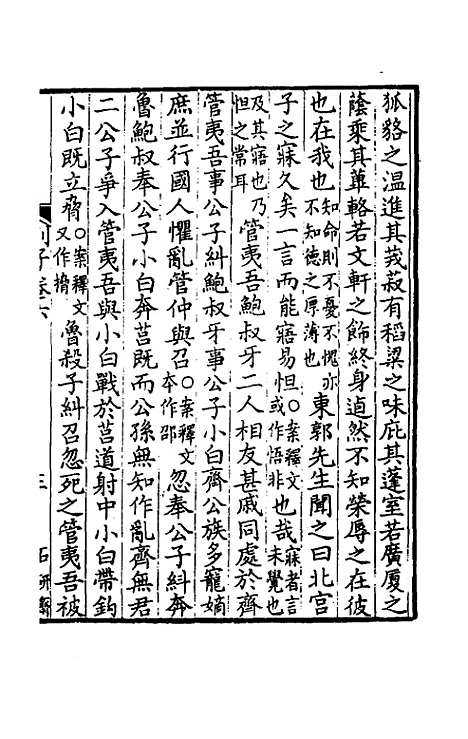 狐貉之温進其茙菽有稻粱之味庇其蓬室若廣厦之
蔭乘其蓽輅若文軒之飾終身逌然不知榮辱之在彼
也在我也知命則不憂不愧亦不知德之厚薄也東郭先生聞之曰北宫
子之寐久矣一言而能寤易怛○案釋文或作悟非也哉寐者言未覺也
及其寤也乃怛之常耳管夷吾鮑叔牙二人相友甚戚同處於齊
管夷吾事公子糾鮑叔牙事公子小白齊公族多寵嫡
庶並行國人懼亂管仲與召○案釋文本作邵忽奉公子糾奔
魯鮑叔奉公子小白奔莒既而公孫無知作亂齊無君
二公子爭入管夷吾與小白戰於莒道射中小白帶鈎
小白既立脅○案釋文又作擖魯殺子糾召忽死之管夷吾被
列子卷六
三
石研齋